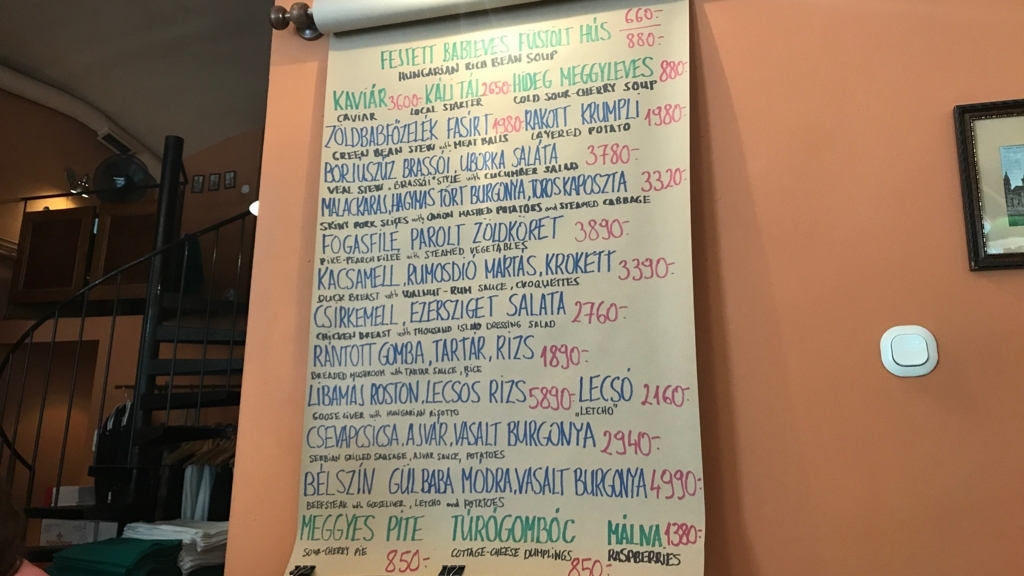 FEJTETT BABLEVES FÜSTÖLT HÚS 660.- 880.-
HUNGARIAN RICH BEAN SOUP
KAVIÁR 3600.- KÁLI TÁL 2650.- HIDEG MEGGYLEVES 880.-
CAVIAR LOCAL STARTER COLD SOUR-CHERRY SOUP
ZÖLDBABFŐZELÉK FASÍRT 1980.- RAKOTT KRUMPLI 1980.-
GREEN BEAN STEW with MEAT BALLS LAYERED POTATO
BORJUSZŰZ BRASSÓI, UBORKA SALÁTA 3780.-
VEAL STEW "BRASSÓI" STYLE with CUCUMBER SALAD
MALACKARAJ, HAGYMÁS TÖRT BURGONYA, TOROSKÁPOSZTA 3320.-
SKINY PORK SLICES with ONION MASHED POTATOES and STEAMED CABBAGE
FOGASFILÉ PÁROLT ZÖLDKÖRET 3890.-
PIKE-PEARCH FILEE with STEAMED VEGETABLES
KACSAMELL, RUMOSDIÓ MÁRTÁS, KROKETT 3390.-
DUCK BREAST with WALNUT-RUM SAUCE, CROQUETTES
CSIRKEMELL, EZERSZIGET SALÁTA 2760.-
CHICKEN BREAST with THOUSAND ISLAND DRESSING SALAD
RÁNTOTT GOMBA, TARTÁR, RIZS 1890.-
BREADED MUSHROOM with TARTAR SAUCE, RICE
LIBAMÁJ ROSTON, LECSÓS RIZS 5890.- LECSÓ 2160.-
GOOSE LIVER with HUNGARIAN RIZOTTO "LETCHO"
CSEVAPCSICSA, AJVÁR, VASALT BURGONYA 2940.-
SERBIAN GRILLED SAUSAGE, AJVAR SAUCE, POTATOES
BÉLSZÍN GÜLBABA MÓDRA, VASALT BURGONYA 4990.-
BEEFSTEAK with GOOSELIVER, LETCHO and POTATOES
MEGGYES PITE TÚRÓGOMBÓC MÁLNA 1380.-
SOUR-CHERRY PIE COTTAGE-CHEESE DUMPLINGS RASPBERRIES
850.- 850.-